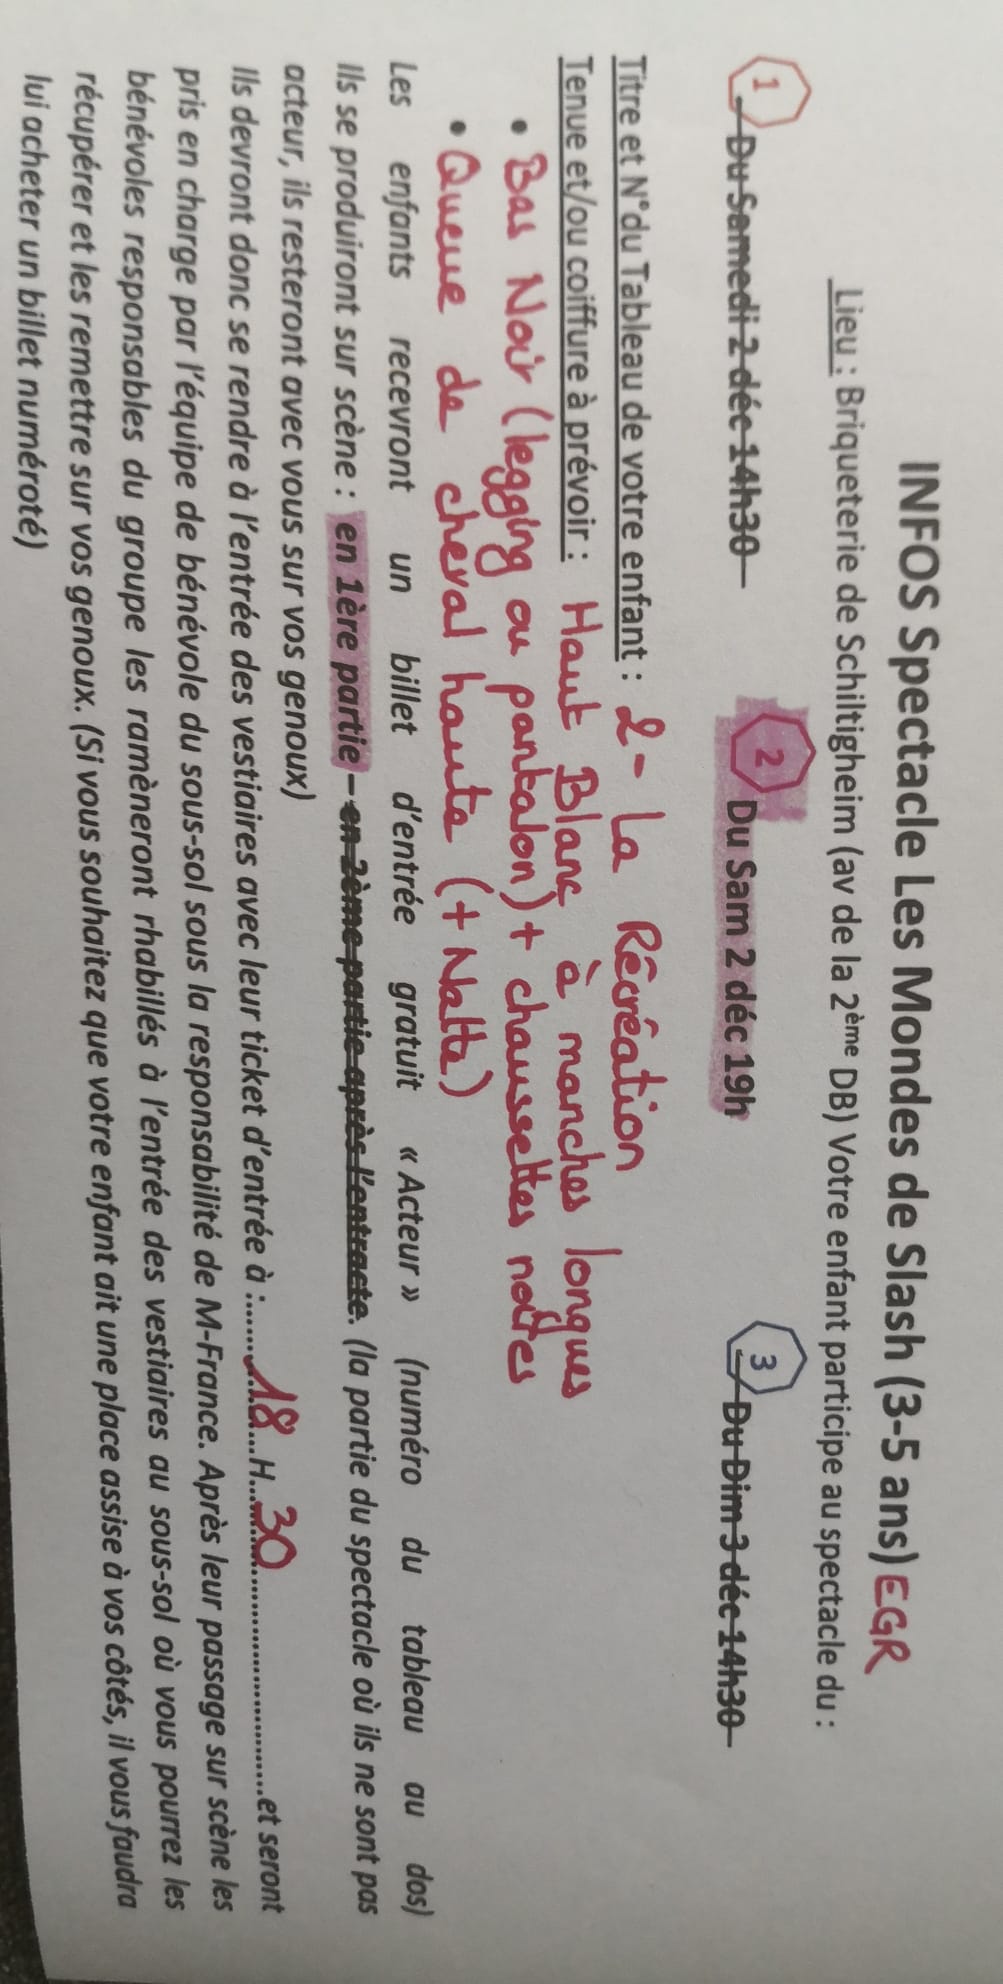 INFOS Spectacle Les Mondes de Slash (3-5 ans) EGR
Lieu : Briqueterie de Schiltigheim (av de la 2ème DB) Votre enfant participe au spectacle du :
1 Du Samedi 2 déc 14h30 2 Du Sam 2 déc 19h 3 Du Dim 3 déc 14h30
Titre et N°du Tableau de votre enfant : 2- La Récréation
Tenue et/ou coiffure à prévoir : Haut Blanc à manches longues
• Bas Noir (legging ou pantalon) + chaussettes noires
• Queue de cheval haute (+ Natte)
Les enfants recevront un billet d'entrée gratuit « Acteur » (numéro du tableau au dos)
Ils se produiront sur scène : en 1ère partie – en 2ème partie après l'entracte. (la partie du spectacle où ils ne sont pas
acteur, ils resteront avec vous sur vos genoux)
Ils devront donc se rendre à l'entrée des vestiaires avec leur ticket d'entrée à :.......18....H....30..........................et seront
pris en charge par l'équipe de bénévole du sous-sol sous la responsabilité de M-France. Après leur passage sur scène les
bénévoles responsables du groupe les ramèneront rhabillés à l'entrée des vestiaires au sous-sol où vous pourrez les
récupérer et les remettre sur vos genoux. (Si vous souhaitez que votre enfant ait une place assise à vos côtés, il vous faudra
lui acheter un billet numéroté)